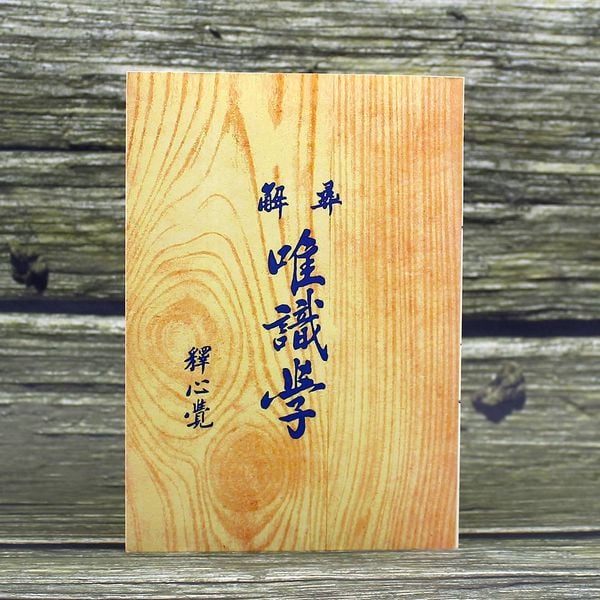 解
唯識學
釋心覺